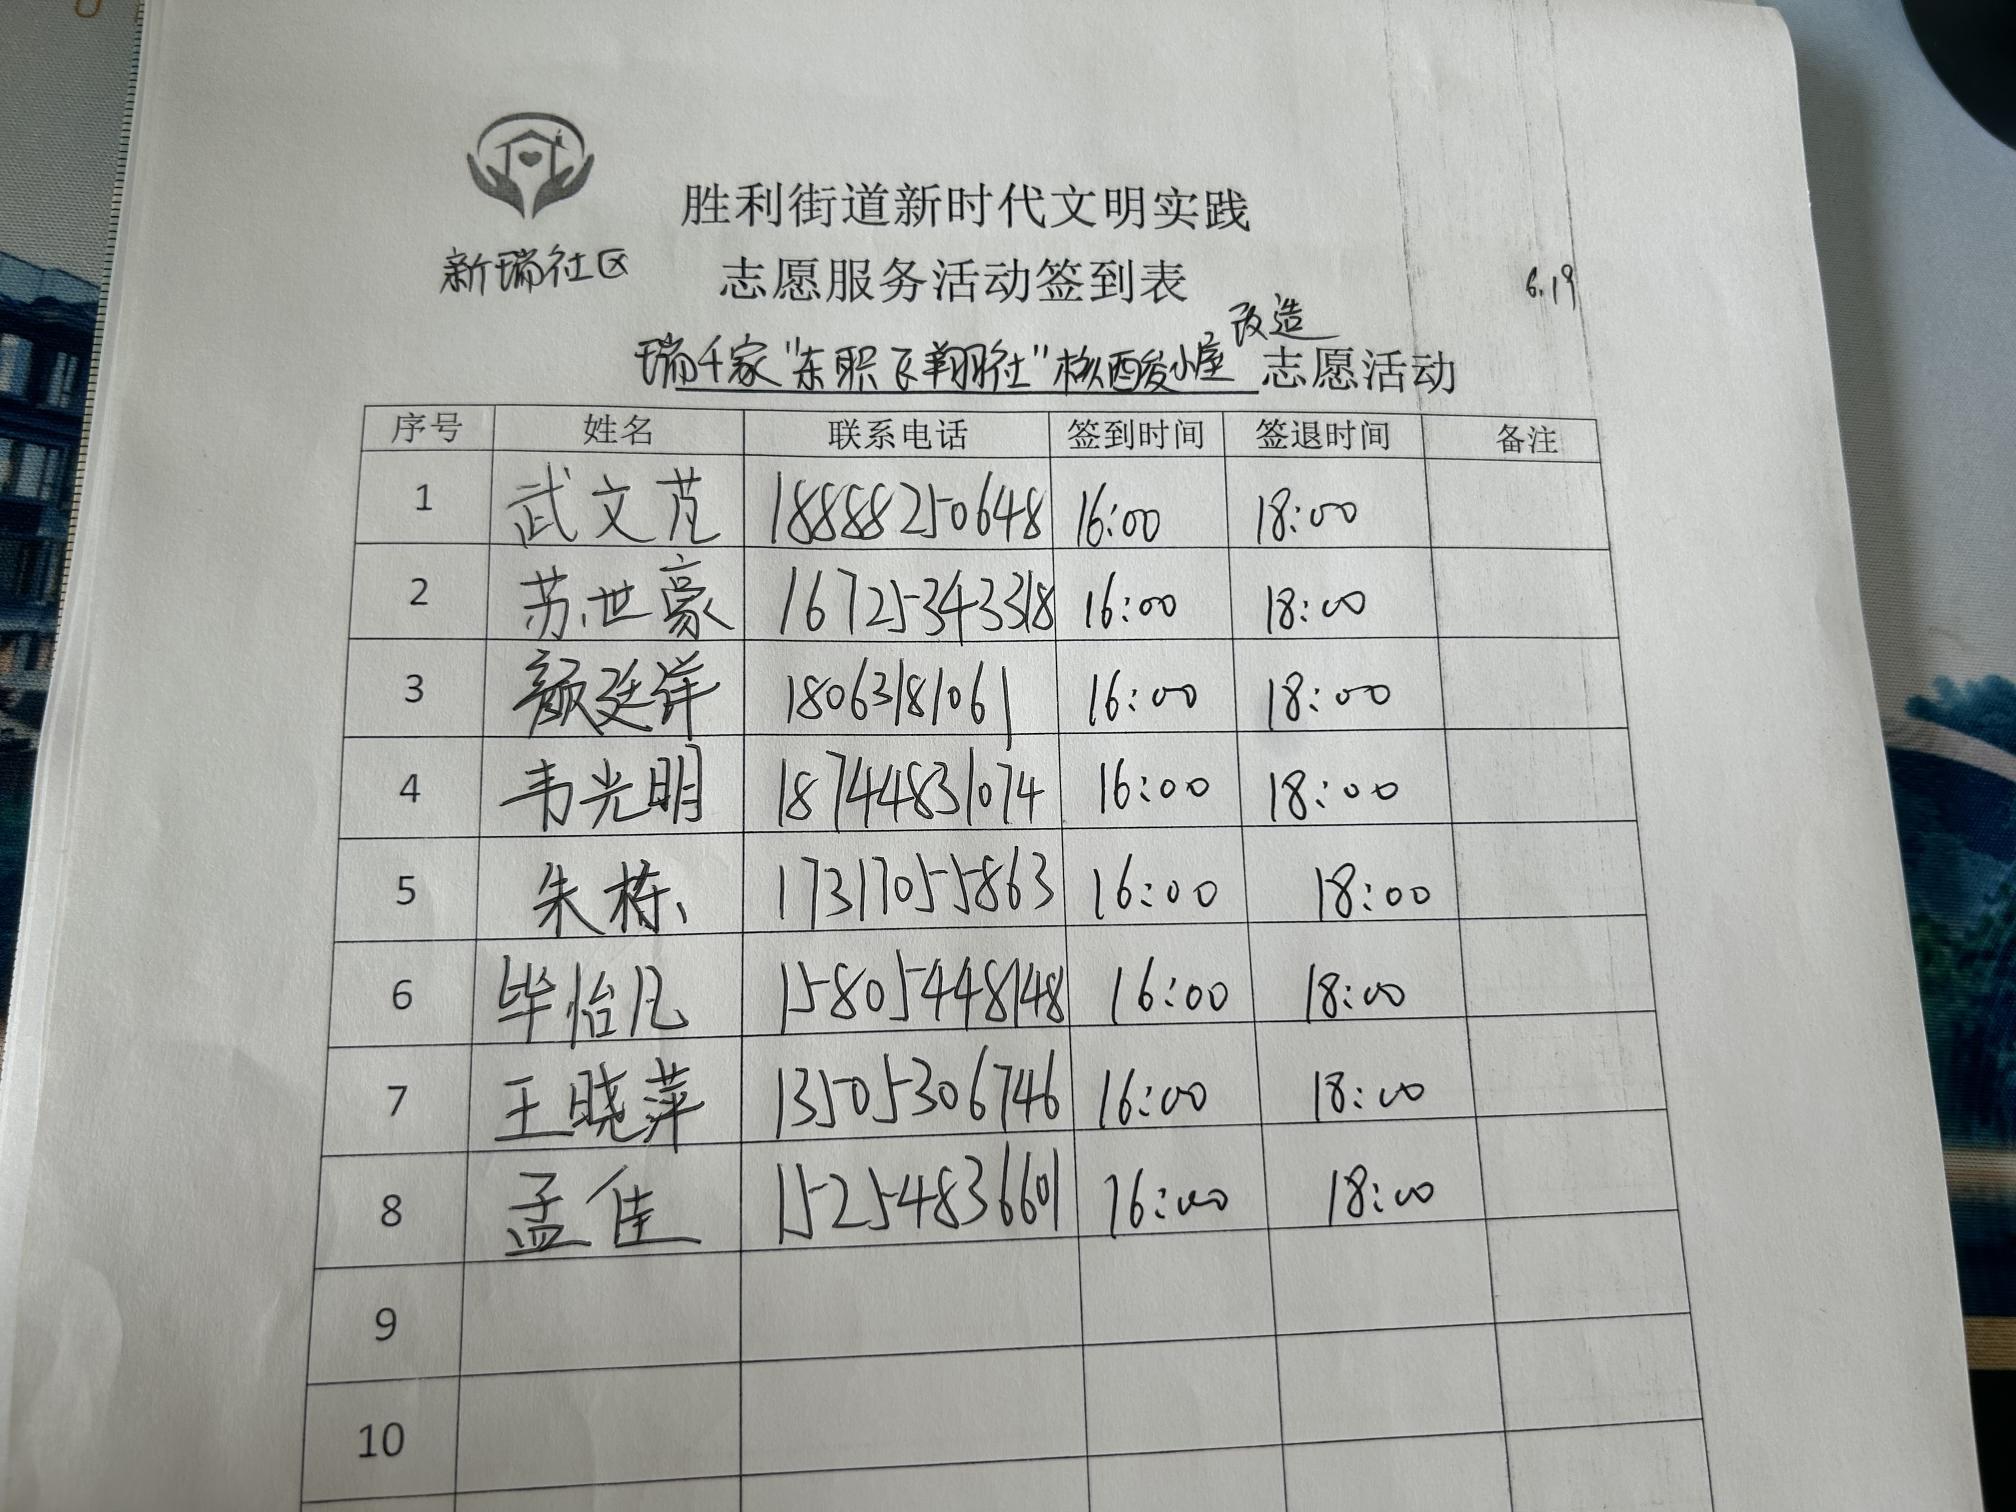 胜利街道新时代文明实践
新瑞社区 志愿服务活动签到表 6.19
改造
瑞千家"东职飞翔社"核酸小屋 志愿活动
序号 姓名 联系电话 签到时间 签退时间 备注
1 武文芃 18888250648 16:00 18:00
2 苏世豪 16725343318 16:00 18:00
3 颜廷洋 18063181061 16:00 18:00
4 韦光明 18744831074 16:00 18:00
5 朱栋 17317055863 16:00 18:00
6 毕怡凡 15805448148 16:00 18:00
7 王晓萍 13505306746 16:00 18:00
8 孟佳 15254836601 16:00 18:00
9
10